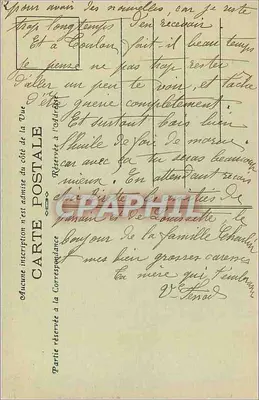 pour avoir des nouvelles, car je reste
trop longtemps d'en recevoir.
Et à Toulon, fait-il beau temps
je pense ne pas trop rester
d'aller un peu te voir, et tache
d'être guerie complètement.
Et surtout bois bien
l'huile de foie de morue
car avec ça tu seras beaucoup
mieux. En attendant recois
de
le
bonjour de la famille Charlin
et mes bien grosses caresses
Ta mère qui t'embrasse
V.
Aucune inscription n'est admise du côté de la Vue
CARTE POSTALE
Partie réservée à la Correspondance
Réservée à l'adresse
CPAPHIL